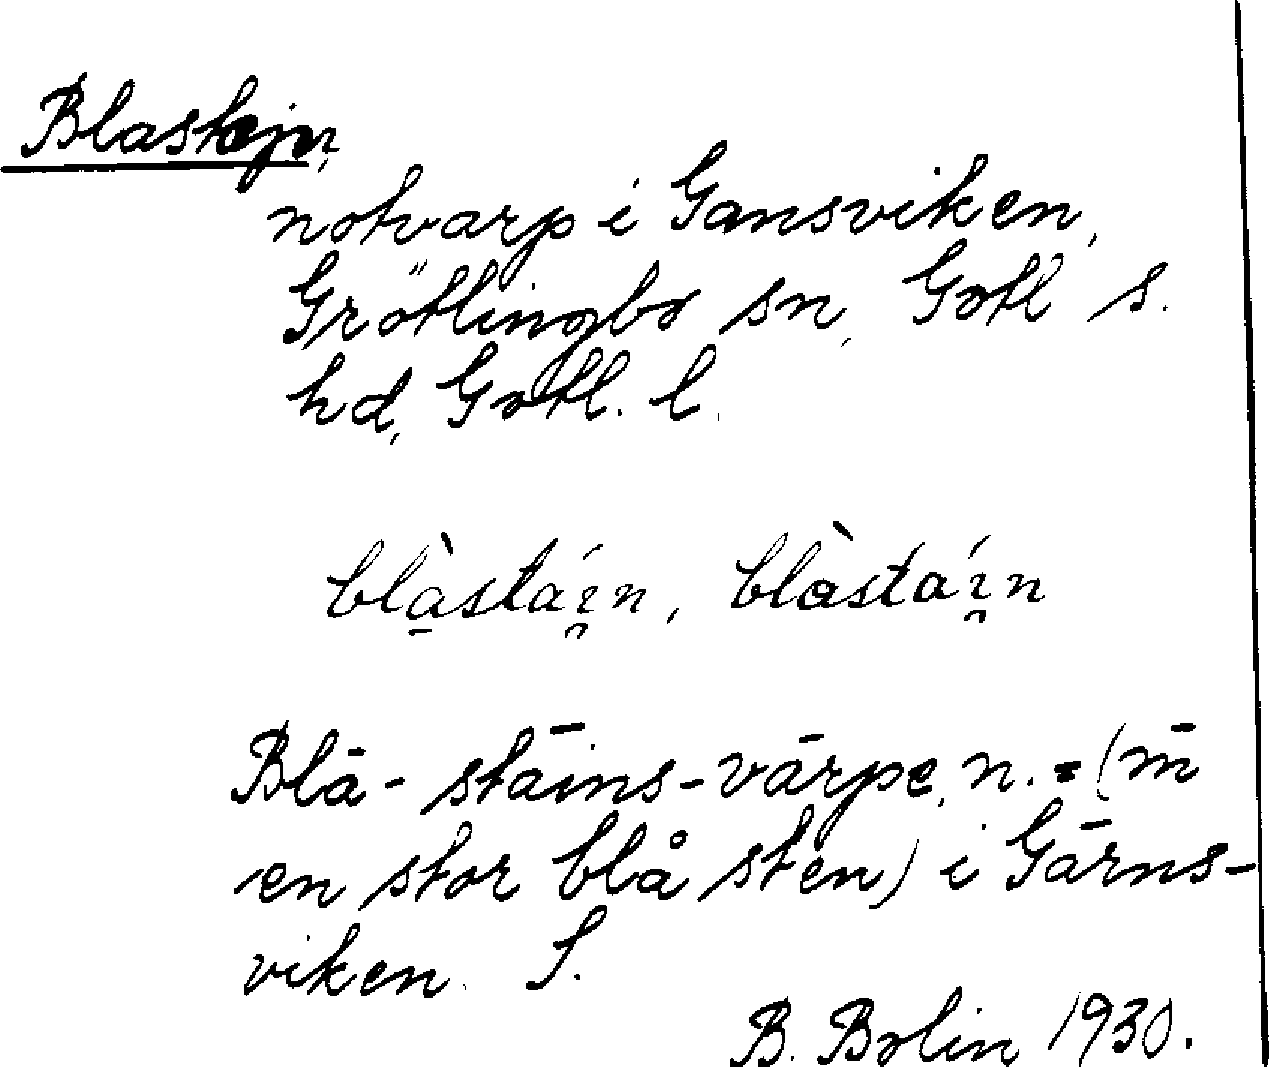 Blastejn,
notvarp i Gansviken,
Grötlingbo sn, Gotl s.
hd, Gotl. l.
blà̱stáı̯n, blàstáı̯n
Blā-stāins-vārpe, n. = (m̄
en stor blå sten) i Gārns-
viken. S.
B. Bolin 1930.